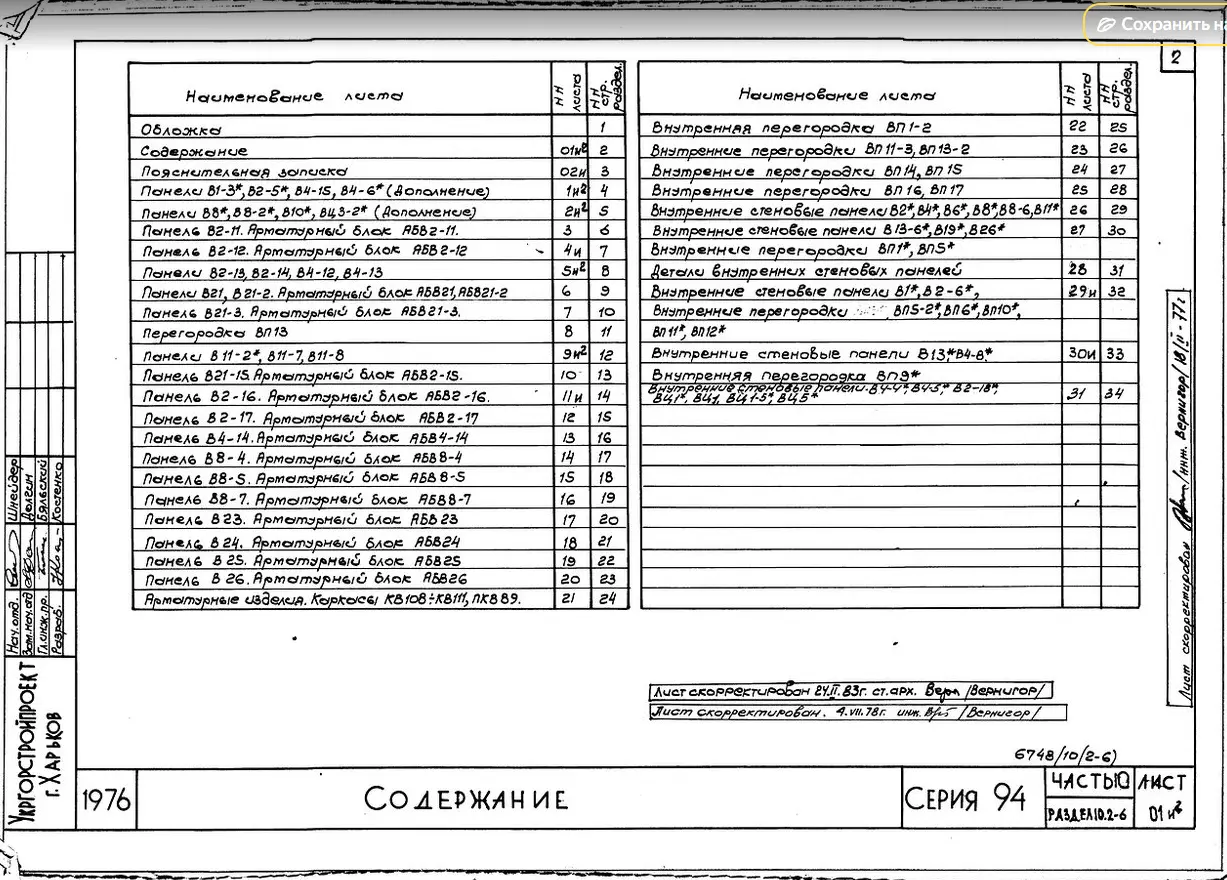 Сохранить на
2
Наименование листа NN листа NN стр. раздел.
Обложка 1
Содержание 01и² 2
Пояснительная записка 02и 3
Панели В1-3*, В2-5*, В4-15, В4-6* (Дополнение) 1и² 4
Панели В8*, В8-2*, В10*, ВЦ3-2* (Дополнение) 2и² 5
Панель В2-11. Арматурный блок АБВ2-11. 3 6
Панель В2-12. Арматурный блок АБВ2-12 4и 7
Панели В2-13, В2-14, В4-12, В4-13 5и² 8
Панели В21, В21-2. Арматурный блок АБВ21, АБВ21-2 6 9
Панель В21-3. Арматурный блок АБВ21-3. 7 10
Перегородка ВП13 8 11
Панели В11-2*, В11-7, В11-8 9и² 12
Панель В21-15. Арматурный блок АБВ2-15. 10 13
Панель В2-16. Арматурный блок АБВ2-16. 11и 14
Панель В2-17. Арматурный блок АБВ2-17 12 15
Панель В4-14. Арматурный блок АБВ4-14 13 16
Панель В8-4. Арматурный блок АБВ8-4 14 17
Панель В8-5. Арматурный блок АБВ8-5 15 18
Панель В8-7. Арматурный блок АБВ8-7 16 19
Панель В23. Арматурный блок АБВ23 17 20
Панель В24. Арматурный блок АБВ24 18 21
Панель В25. Арматурный блок АБВ25 19 22
Панель В26. Арматурный блок АБВ26 20 23
Арматурные изделия. Каркасы КВ108÷КВ111, ПКВ89. 21 24
Наименование листа NN листа NN стр. раздел.
Внутренняя перегородка ВП1-2 22 25
Внутренние перегородки ВП11-3, ВП13-2 23 26
Внутренние перегородки ВП14, ВП15 24 27
Внутренние перегородки ВП16, ВП17 25 28
Внутренние стеновые панели В2*, В4*, В6*, В8*, В8-6, В11* 26 29
Внутренние стеновые панели В13-6*, В19*, В26* 27 30
Внутренние перегородки ВП1*, ВП5*
Детали внутренних стеновых панелей 28 31
Внутренние стеновые панели В1*, В2-6*, 29и 32
Внутренние перегородки ВП5-2*, ВП6*, ВП10*,
ВП11*, ВП12*
Внутренние стеновые панели В13*, В4-8* 30и 33
Внутренняя перегородка ВП9*
Внутренние стеновые панели. В4-4*, В4-5*, В2-18*, 31 34
ВЦ1*, ВЦ1, ВЦ1-5*, ВЦ5*
Лист скорректирован 24.II.83г. ст.арх. /Вернигор/
Лист скорректирован. 4.VII.78г. инж. /Вернигор/
Лист скорректирован /инж. Вернигор/ 18/II-77г
6748/10/2-6)
Нач.отд. Шнейдер
Зам.нач.отд Делгин
Гл.инж.пр. Бяльский
Разраб. Костенко
Укргорстройпроект
г. Харьков
1976
Содержание
Серия 94
Часть 10
Раздел 10.2-6
Лист
01и²